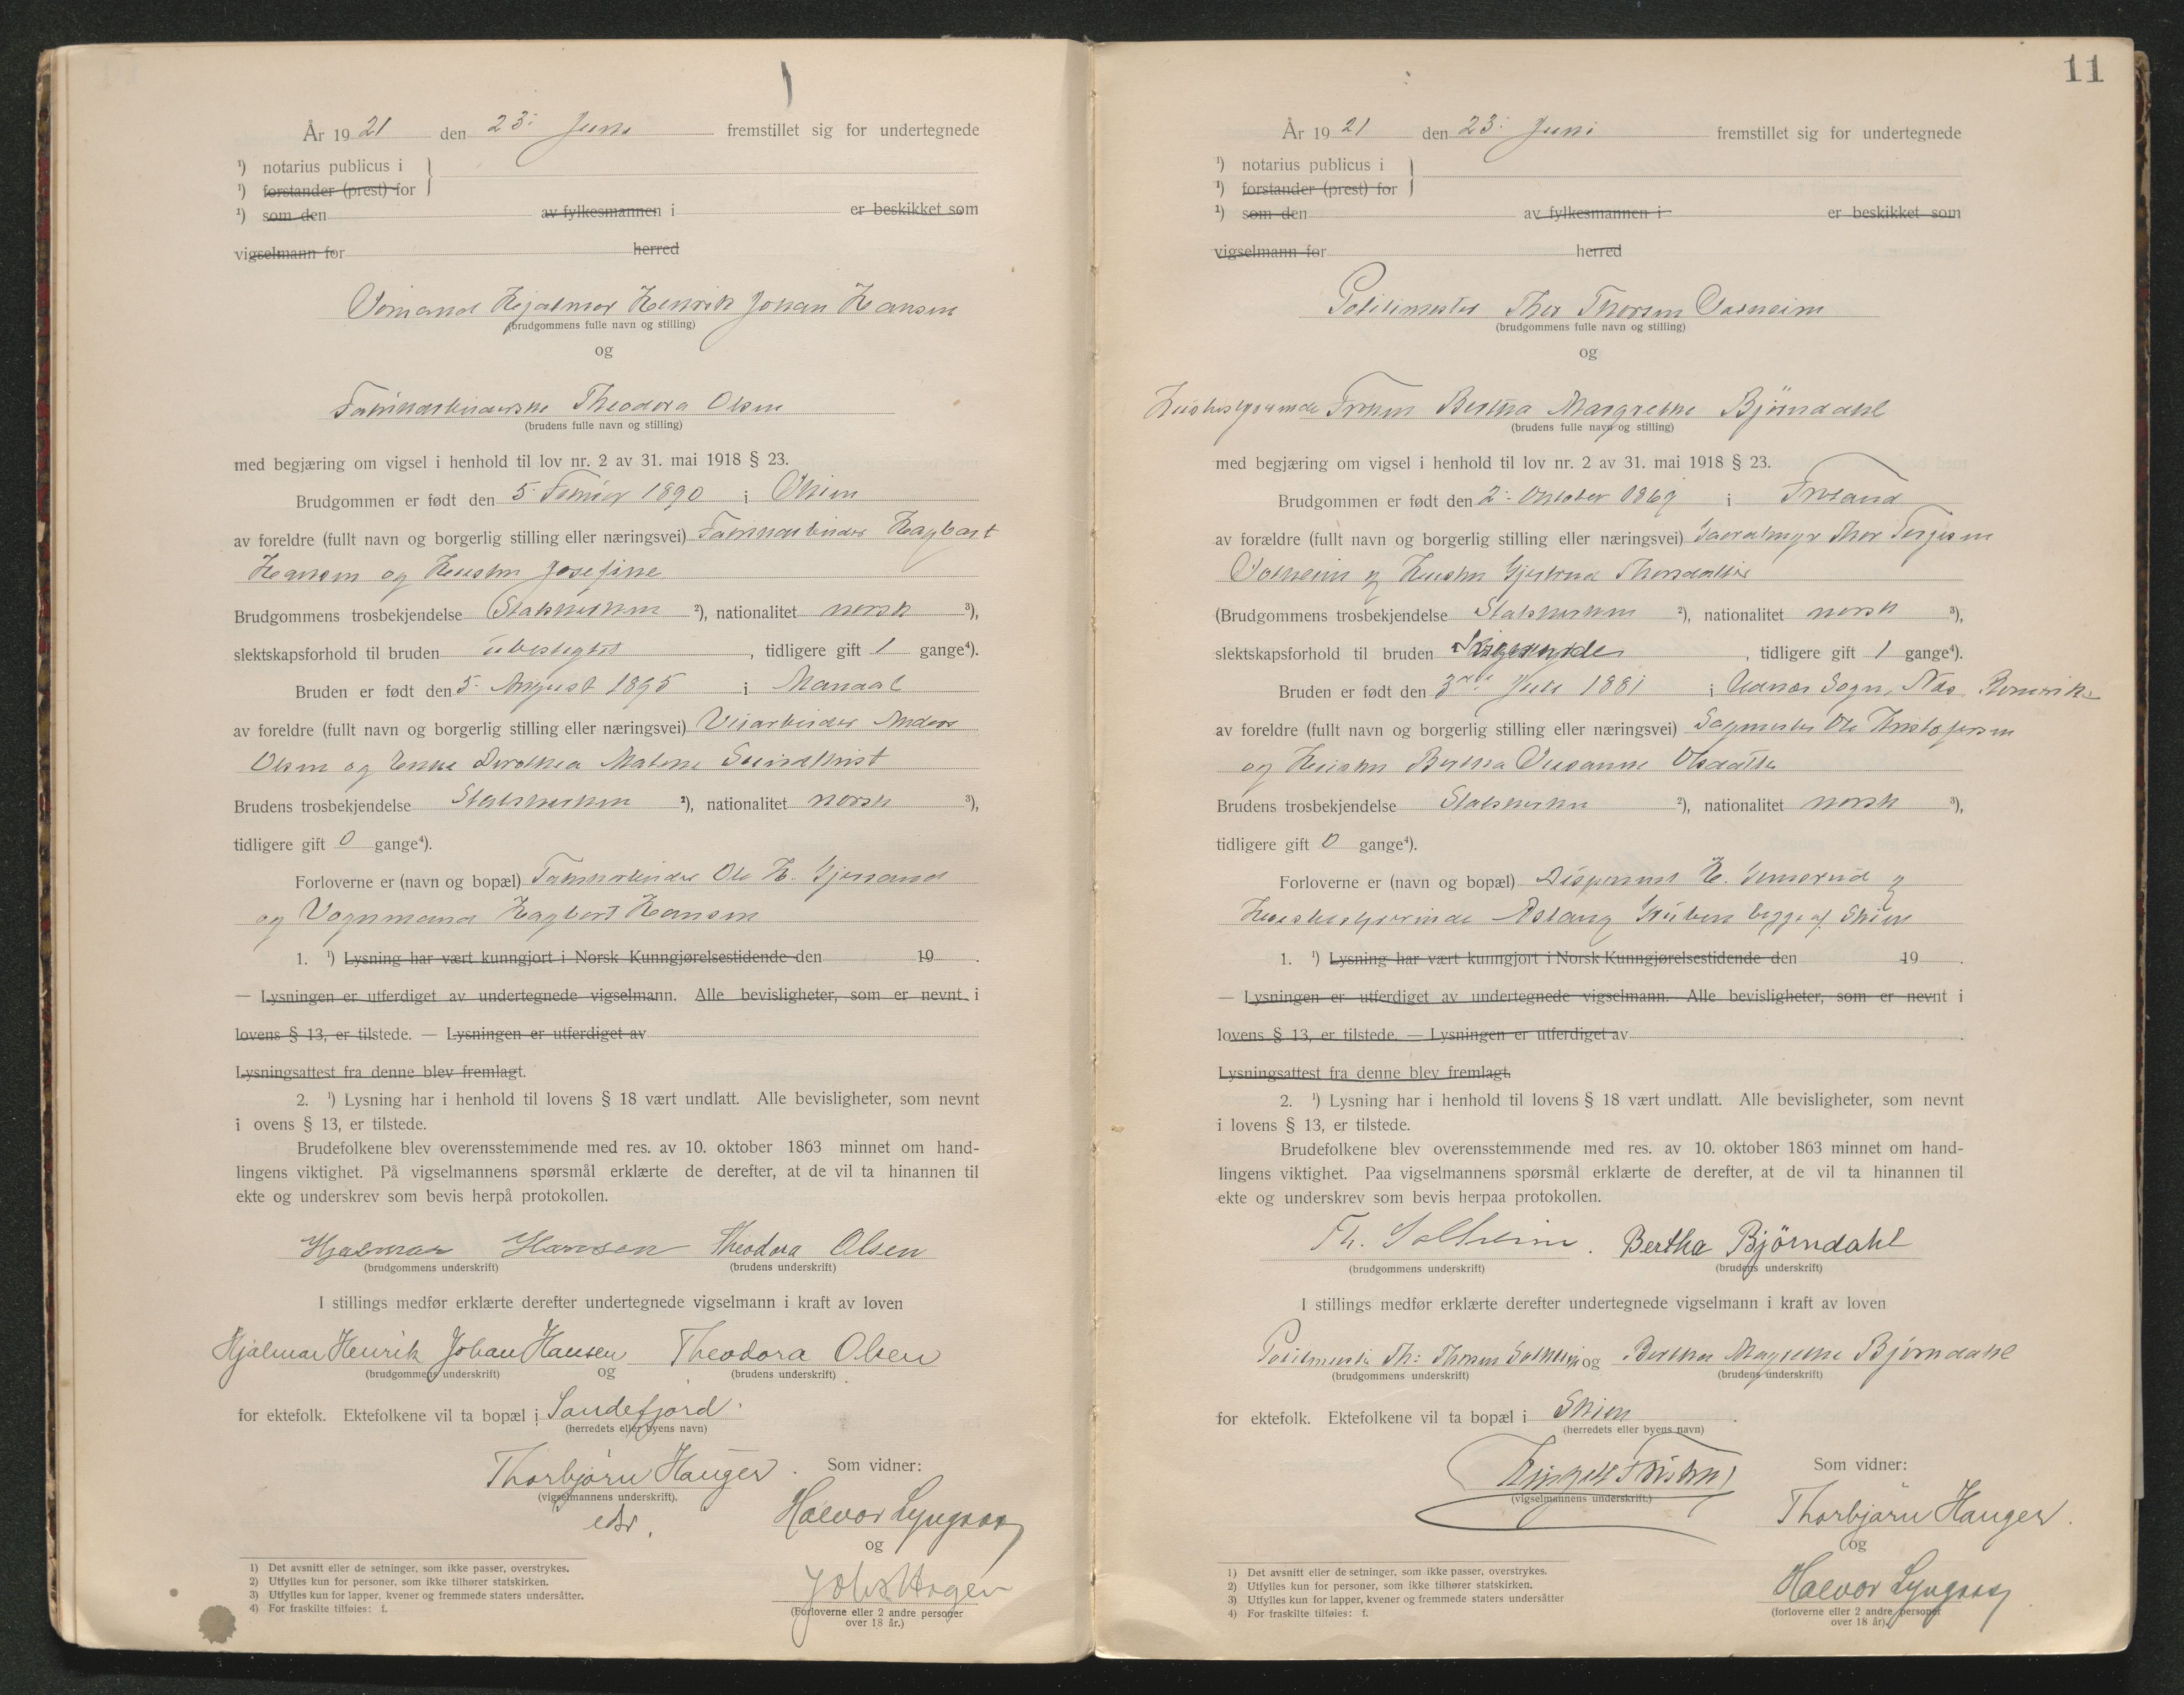 År 1921 den 23: Juni fremstillet sig for undertegnede
¹) notarius publicus i
¹) forstander (prest) for
¹) som den av fylkesmannen i er beskikket som
vigselmann for herred
Hjalmar Henrik Johan Hansen
(brudgommens fulle navn og stilling)
og
Theodora Olsen
(brudens fulle navn og stilling)
med begjæring om vigsel i henhold til lov nr. 2 av 31. mai 1918 § 23.
Brudgommen er født den 5. Februar 1890 i Skien
av foreldre (fullt navn og borgerlig stilling eller næringsvei) Fabrikarbeider Hagbart
Hansen og Hustru Josefine
Brudgommens trosbekjendelse Statskirken ²), nationalitet norsk ³),
slektskapsforhold til bruden ubeslegtet, tidligere gift 1 gange⁴).
Bruden er født den 5. August 1895 i Mandal
av foreldre (fullt navn og borgerlig stilling eller næringsvei) Anders
Olsen og Dorothea Malene
Brudens trosbekjendelse Statskirken ²), nationalitet norsk ³),
tidligere gift 0 gange⁴).
Forloverne er (navn og bopæl) Fabrikarbeider Ole H.
og Vognmand Hagbart Hansen
1. ¹) Lysning har vært kunngjort i Norsk Kunngjørelsestidende den 19 .
— Lysningen er utferdiget av undertegnede vigselmann. Alle bevisligheter, som er nevnt i
lovens § 13, er tilstede. — Lysningen er utferdiget av
Lysningsattest fra denne blev fremlagt.
2. ¹) Lysning har i henhold til lovens § 18 vært undlatt. Alle bevisligheter, som nevnt
i ovens § 13, er tilstede.
Brudefolkene blev overensstemmende med res. av 10. oktober 1863 minnet om hand-
lingens viktighet. På vigselmannens spørsmål erklærte de derefter, at de vil ta hinannen til
ekte og underskrev som bevis herpå protokollen.
Hjalmar Hansen Theodora Olsen
(brudgommens underskrift) (brudens underskrift)
I stillings medfør erklærte derefter undertegnede vigselmann i kraft av loven
Hjalmar Henrik Johan Hansen Theodora Olsen
(brudgommens underskrift) og (brudens underskrift)
for ektefolk. Ektefolkene vil ta bopæl i Sandefjord.
(herredets eller byens navn)
Thorbjørn Hauger. Som vidner:
(vigselmannens underskrift).
Halvor Lyngaas
og
Johs Hagen
(Forloverne eller 2 andre personer
over 18 år.)
1) Det avsnitt eller de setninger, som ikke passer, overstrykes.
2) Utfylles kun for personer, som ikke tilhører statskirken.
3) Utfylles kun for lapper, kvener og fremmede staters undersåtter.
4) For fraskilte tilføies: f.
11
År 1921 den 23: Juni fremstillet sig for undertegnede
¹) notarius publicus i
¹) forstander (prest) for
¹) som den av fylkesmannen i er beskikket som
vigselmann for herred
Politimester Thor Thorsen Solheim
(brudgommens fulle navn og stilling)
og
Frøken Bertha Margrethe Bjørndahl
(brudens fulle navn og stilling)
med begjæring om vigsel i henhold til lov nr. 2 av 31. mai 1918 § 23.
Brudgommen er født den 2: Oktober 1869 i Froland
av forældre (fullt navn og borgerlig stilling eller næringsvei) Thor Terjesen
Solheim og Hustru Gjertrud Thorsdatter
(Brudgommens trosbekjendelse Statskirken ²), nationalitet norsk ³),
slektskapsforhold til bruden, tidligere gift 1 gange⁴).
Bruden er født den 3die Juli 1881 i Udnæs Sogn, Næs Romerike
av foreldre (fullt navn og borgerlig stilling eller næringsvei) Sagmester Ole Kristofersen
og Hustru Bertha Susanne Olsdatter
Brudens trosbekjendelse Statskirken ²), nationalitet norsk ³),
tidligere gift 0 gange⁴).
Forloverne er (navn og bopæl) Disponent H. og
Aslaug begge af Skien
1. ¹) Lysning har vært kunngjort i Norsk Kunngjørelsestidende den 19 .
— Lysningen er utferdiget av undertegnede vigselmann. Alle bevisligheter, som er nevnt i
lovens § 13, er tilstede. — Lysningen er utferdiget av .
Lysningsattest fra denne blev fremlagt.
2. ¹) Lysning har i henhold til lovens § 18 vært undlatt. Alle bevisligheter, som nevnt
i lovens § 13, er tilstede.
Brudefolkene blev overensstemmende med res. av 10. oktober 1863 minnet om hand-
lingens viktighet. Paa vigselmannens spørsmål erklærte de derefter, at de vil ta hinannen til
ekte og underskrev som bevis herpaa protokollen.
Th. Solheim. Bertha Björndahl
(brudgommens underskrift) (brudens underskrift)
I stillings medfør erklærte derefter undertegnede vigselmann i kraft av loven
Politimester Th: Thorsen Solheim og Bertha Margrethe Bjørndahl
(brudgommens underskrift) (brudens underskrift)
for ektefolk. Ektefolkene vil ta bopæl i Skien .
(herredets eller byens navn)
Som vidner:
(vigselmannens underskrift.)
Thorbjørn Hauger.
og
Halvor Lyngaas
(forloverne eller 2 andre personer
over 18 år).
1) Det avsnitt eller de setninger, som ikke passer, overstrykes.
2) Utfylles kun for personer, som ikke tilhører statskirken.
3) Utfylles kun for lapper, kvener og fremmede staters undersåtter
4) For fraskilte tilføies: f.